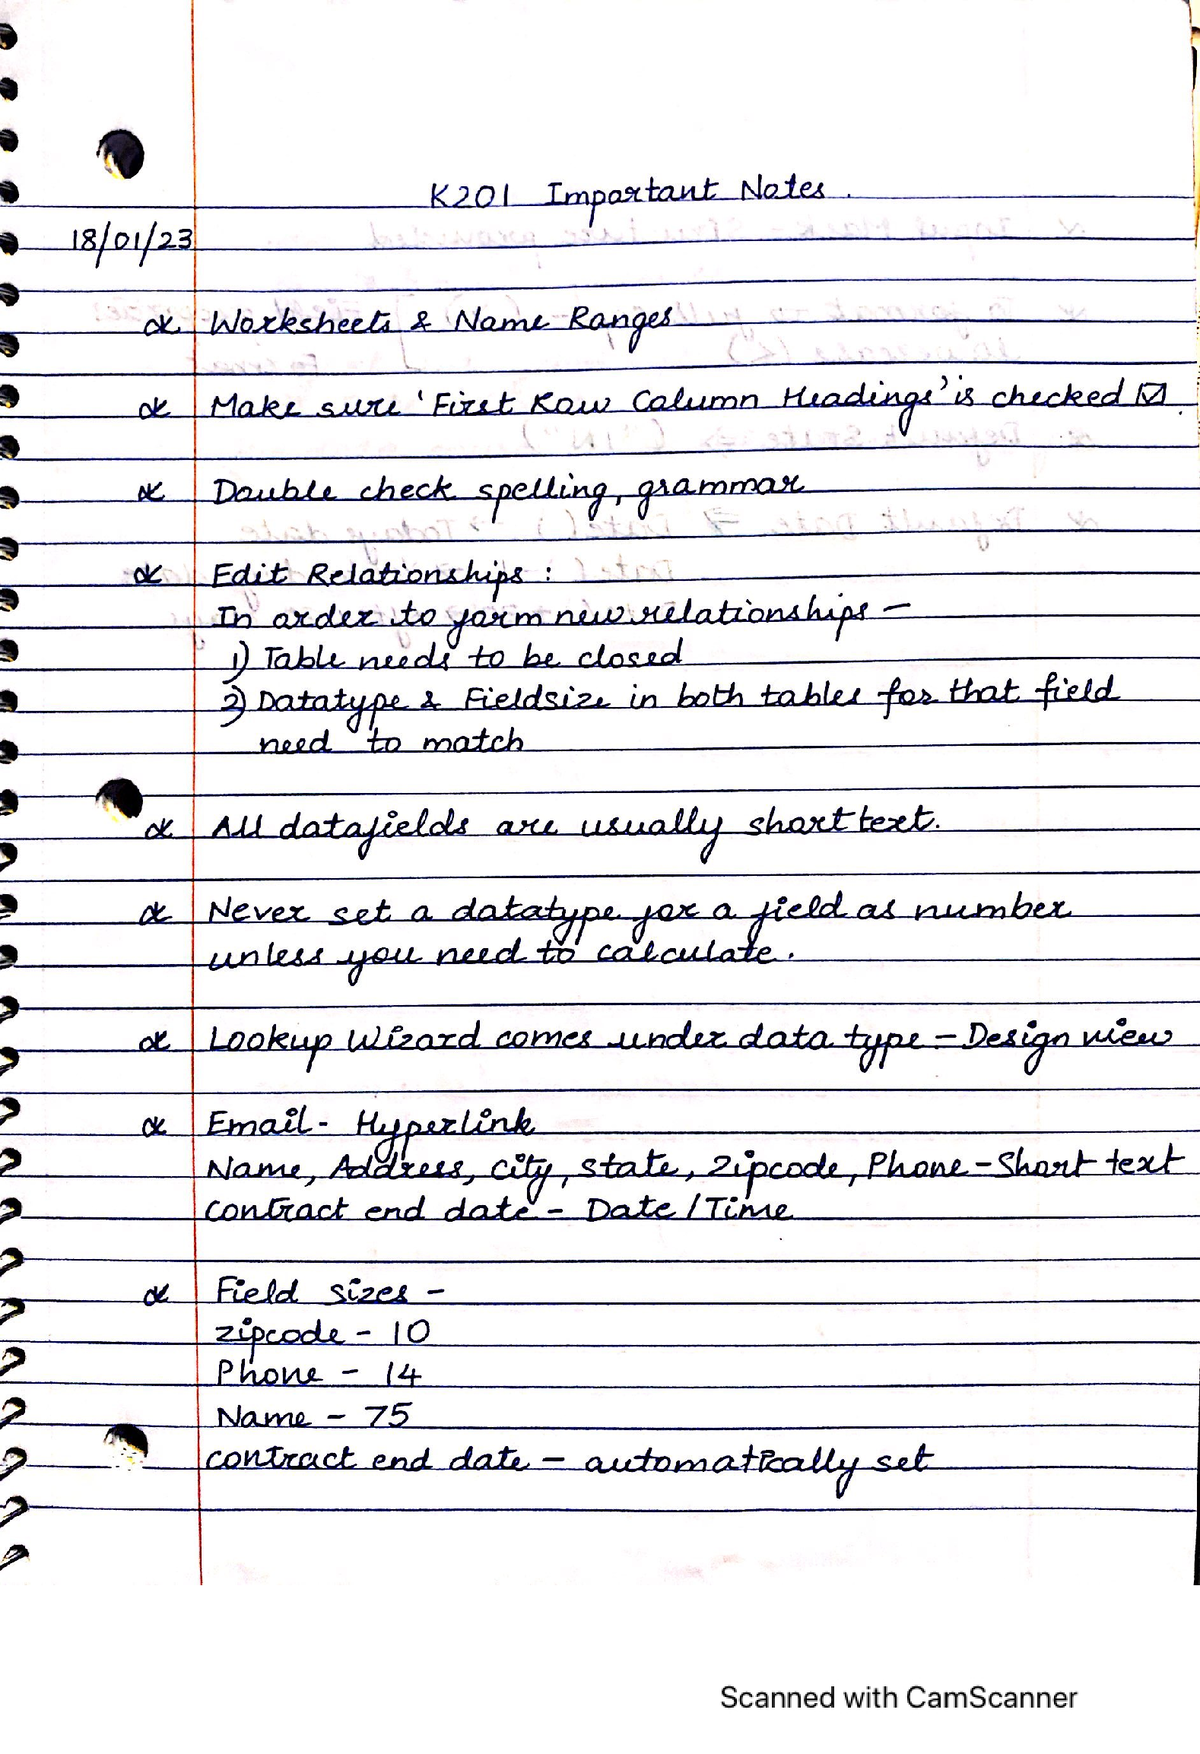 K201 Important Notes.
18/01/23
* Worksheets & Name Ranges
* Make sure 'First Row Column Headings' is checked ☑.
* Double check spelling, grammar
* Edit Relationships :
In order to form new relationships —
1) Table needs to be closed
2) Datatype & Fieldsize in both tables for that field
need to match
* All datafields are usually short text.
* Never set a datatype for a field as number
unless you need to calculate.
* Lookup Wizard comes under data type — Design view
* Email - Hyperlink
Name, Address, city, state, zipcode, Phone - Short text
contract end date - Date/Time
* Field sizes -
zipcode - 10
Phone - 14
Name - 75
contract end date - automatically set
Scanned with CamScanner